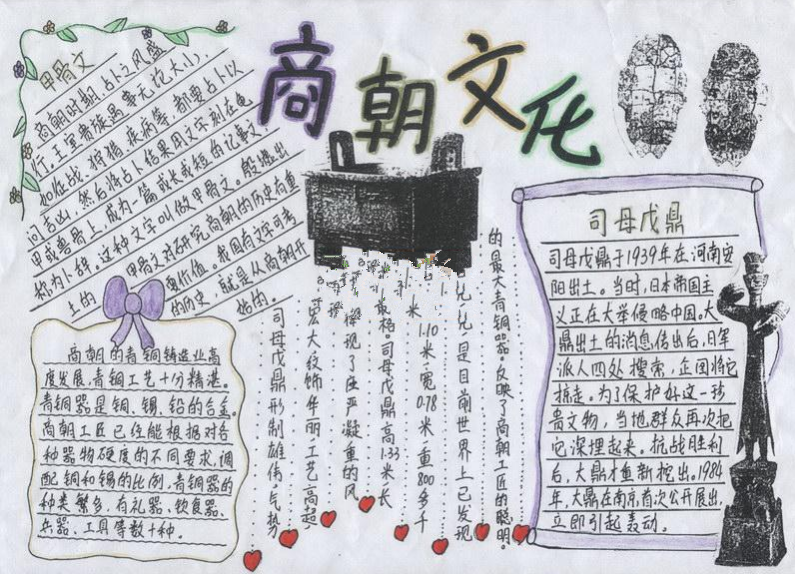 商朝文化
甲骨文
商朝时期,占卜之风盛
行。王室贵族遇事无论大小,
如征战、狩猎、疾病等,都要占卜以
问吉凶,然后将占卜结果用文字刻在龟
甲或兽骨上,成为一篇或长或短的记事文,
称为卜辞。这种文字叫做甲骨文。殷墟出
土的 甲骨文对研究商朝的历史有重
要价值。我国有文字可考
的历史,就是从商朝开
始的。
商朝的青铜铸造业高
度发展,青铜工艺十分精湛。
青铜器是铜、锡、铅的合金。
商朝工匠已经能根据对各
种器物硬度的不同要求,调
配铜和锡的比例。青铜器的
种类繁多,有礼器、饮食器、
兵器、工具等数十种。
司母戊鼎形制雄伟,气势
宏大纹饰华丽工艺高超,
现了庄严凝重的风
格。司母戊鼎高1.33米长
米1.10米·宽0.78米重800多千
是目前世界上已发现
的最大青铜器。反映了商朝工匠的聪明。
司母戊鼎
司母戊鼎于1939年在河南安
阳出土。当时,日本帝国主
义正在大举侵略中国。大
鼎出土的消息传出后,日军
派人四处搜索,企图将它
掠走。为了保护好这一珍
贵文物,当地群众再次把
它深埋起来。抗战胜利
后,大鼎才重新挖出。1984
年,大鼎在南京首次公开展出,
立即引起轰动。